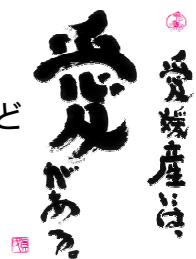 愛媛産には、
愛がある。
ど